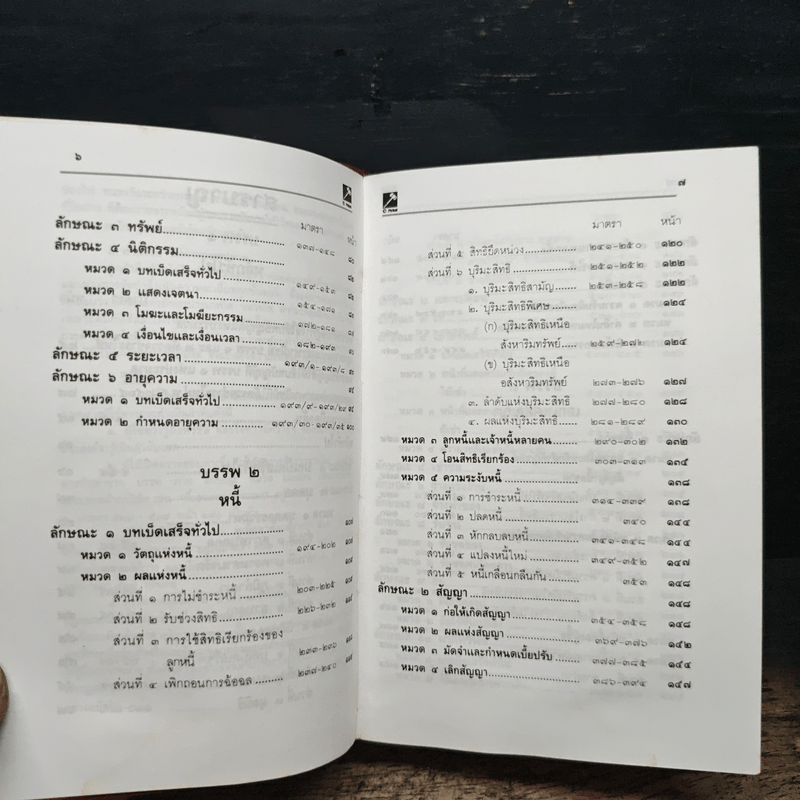 ๖
มาตรา หน้า
ลักษณะ ๓ ทรัพย์ ๑๓๗-๑๔๘
ลักษณะ ๔ นิติกรรม
หมวด ๑ บทเบ็ดเสร็จทั่วไป ๑๔๙-๑๕๓
หมวด ๒ แสดงเจตนา ๑๕๔-๑๗๑
หมวด ๓ โมฆะและโมฆียะกรรม ๑๗๒-๑๘๑
หมวด ๔ เงื่อนไขและเงื่อนเวลา ๑๘๒-๑๙๓
ลักษณะ ๕ ระยะเวลา ๑๙๓/๑-๑๙๓/๘
ลักษณะ ๖ อายุความ
หมวด ๑ บทเบ็ดเสร็จทั่วไป ๑๙๓/๙-๑๙๓/๒๙
หมวด ๒ กำหนดอายุความ ๑๙๓/๓๐-๑๙๓/๓๕ ๑๐๐
บรรพ ๒
หนี้
ลักษณะ ๑ บทเบ็ดเสร็จทั่วไป
หมวด ๑ วัตถุแห่งหนี้ ๑๙๔-๒๐๒
หมวด ๒ ผลแห่งหนี้
ส่วนที่ ๑ การไม่ชำระหนี้ ๒๐๓-๒๒๕
ส่วนที่ ๒ รับช่วงสิทธิ ๒๒๖-๒๓๒
ส่วนที่ ๓ การใช้สิทธิเรียกร้องของ
ลูกหนี้ ๒๓๓-๒๓๖
ส่วนที่ ๔ เพิกถอนการฉ้อฉล ๒๓๗-๒๔๐
๗
มาตรา หน้า
ส่วนที่ ๕ สิทธิยึดหน่วง ๒๔๑-๒๕๐ ๑๒๐
ส่วนที่ ๖ บุริมะสิทธิ ๒๕๑-๒๕๒ ๑๒๒
๑. บุริมะสิทธิสามัญ ๒๕๓-๒๕๘ ๑๒๒
๒. บุริมะสิทธิพิเศษ ๑๒๔
(ก) บุริมะสิทธิเหนือ
สังหาริมทรัพย์ ๒๕๙-๒๗๒ ๑๒๔
(ข) บุริมะสิทธิเหนือ
อสังหาริมทรัพย์ ๒๗๓-๒๗๖ ๑๒๗
๓. ลำดับแห่งบุริมะสิทธิ ๒๗๗-๒๘๐ ๑๒๘
๔. ผลแห่งบุริมะสิทธิ ๒๘๑-๒๘๙ ๑๓๐
หมวด ๓ ลูกหนี้และเจ้าหนี้หลายคน ๒๙๐-๓๐๒ ๑๓๒
หมวด ๔ โอนสิทธิเรียกร้อง ๓๐๓-๓๑๓ ๑๓๕
หมวด ๕ ความระงับหนี้ ๑๓๘
ส่วนที่ ๑ การชำระหนี้ ๓๑๔-๓๓๙ ๑๓๘
ส่วนที่ ๒ ปลดหนี้ ๓๔๐ ๑๔๔
ส่วนที่ ๓ หักกลบลบหนี้ ๓๔๑-๓๔๘ ๑๔๕
ส่วนที่ ๔ แปลงหนี้ใหม่ ๓๔๙-๓๕๒ ๑๔๗
ส่วนที่ ๕ หนี้เกลื่อนกลืนกัน ๓๕๓ ๑๔๘
ลักษณะ ๒ สัญญา ๑๔๘
หมวด ๑ ก่อให้เกิดสัญญา ๓๕๔-๓๕๘ ๑๔๘
หมวด ๒ ผลแห่งสัญญา ๓๖๙-๓๗๖ ๑๕๒
หมวด ๓ มัดจำและกำหนดเบี้ยปรับ ๓๗๗-๓๘๕ ๑๕๔
หมวด ๔ เลิกสัญญา ๓๘๖-๓๙๔ ๑๕๗